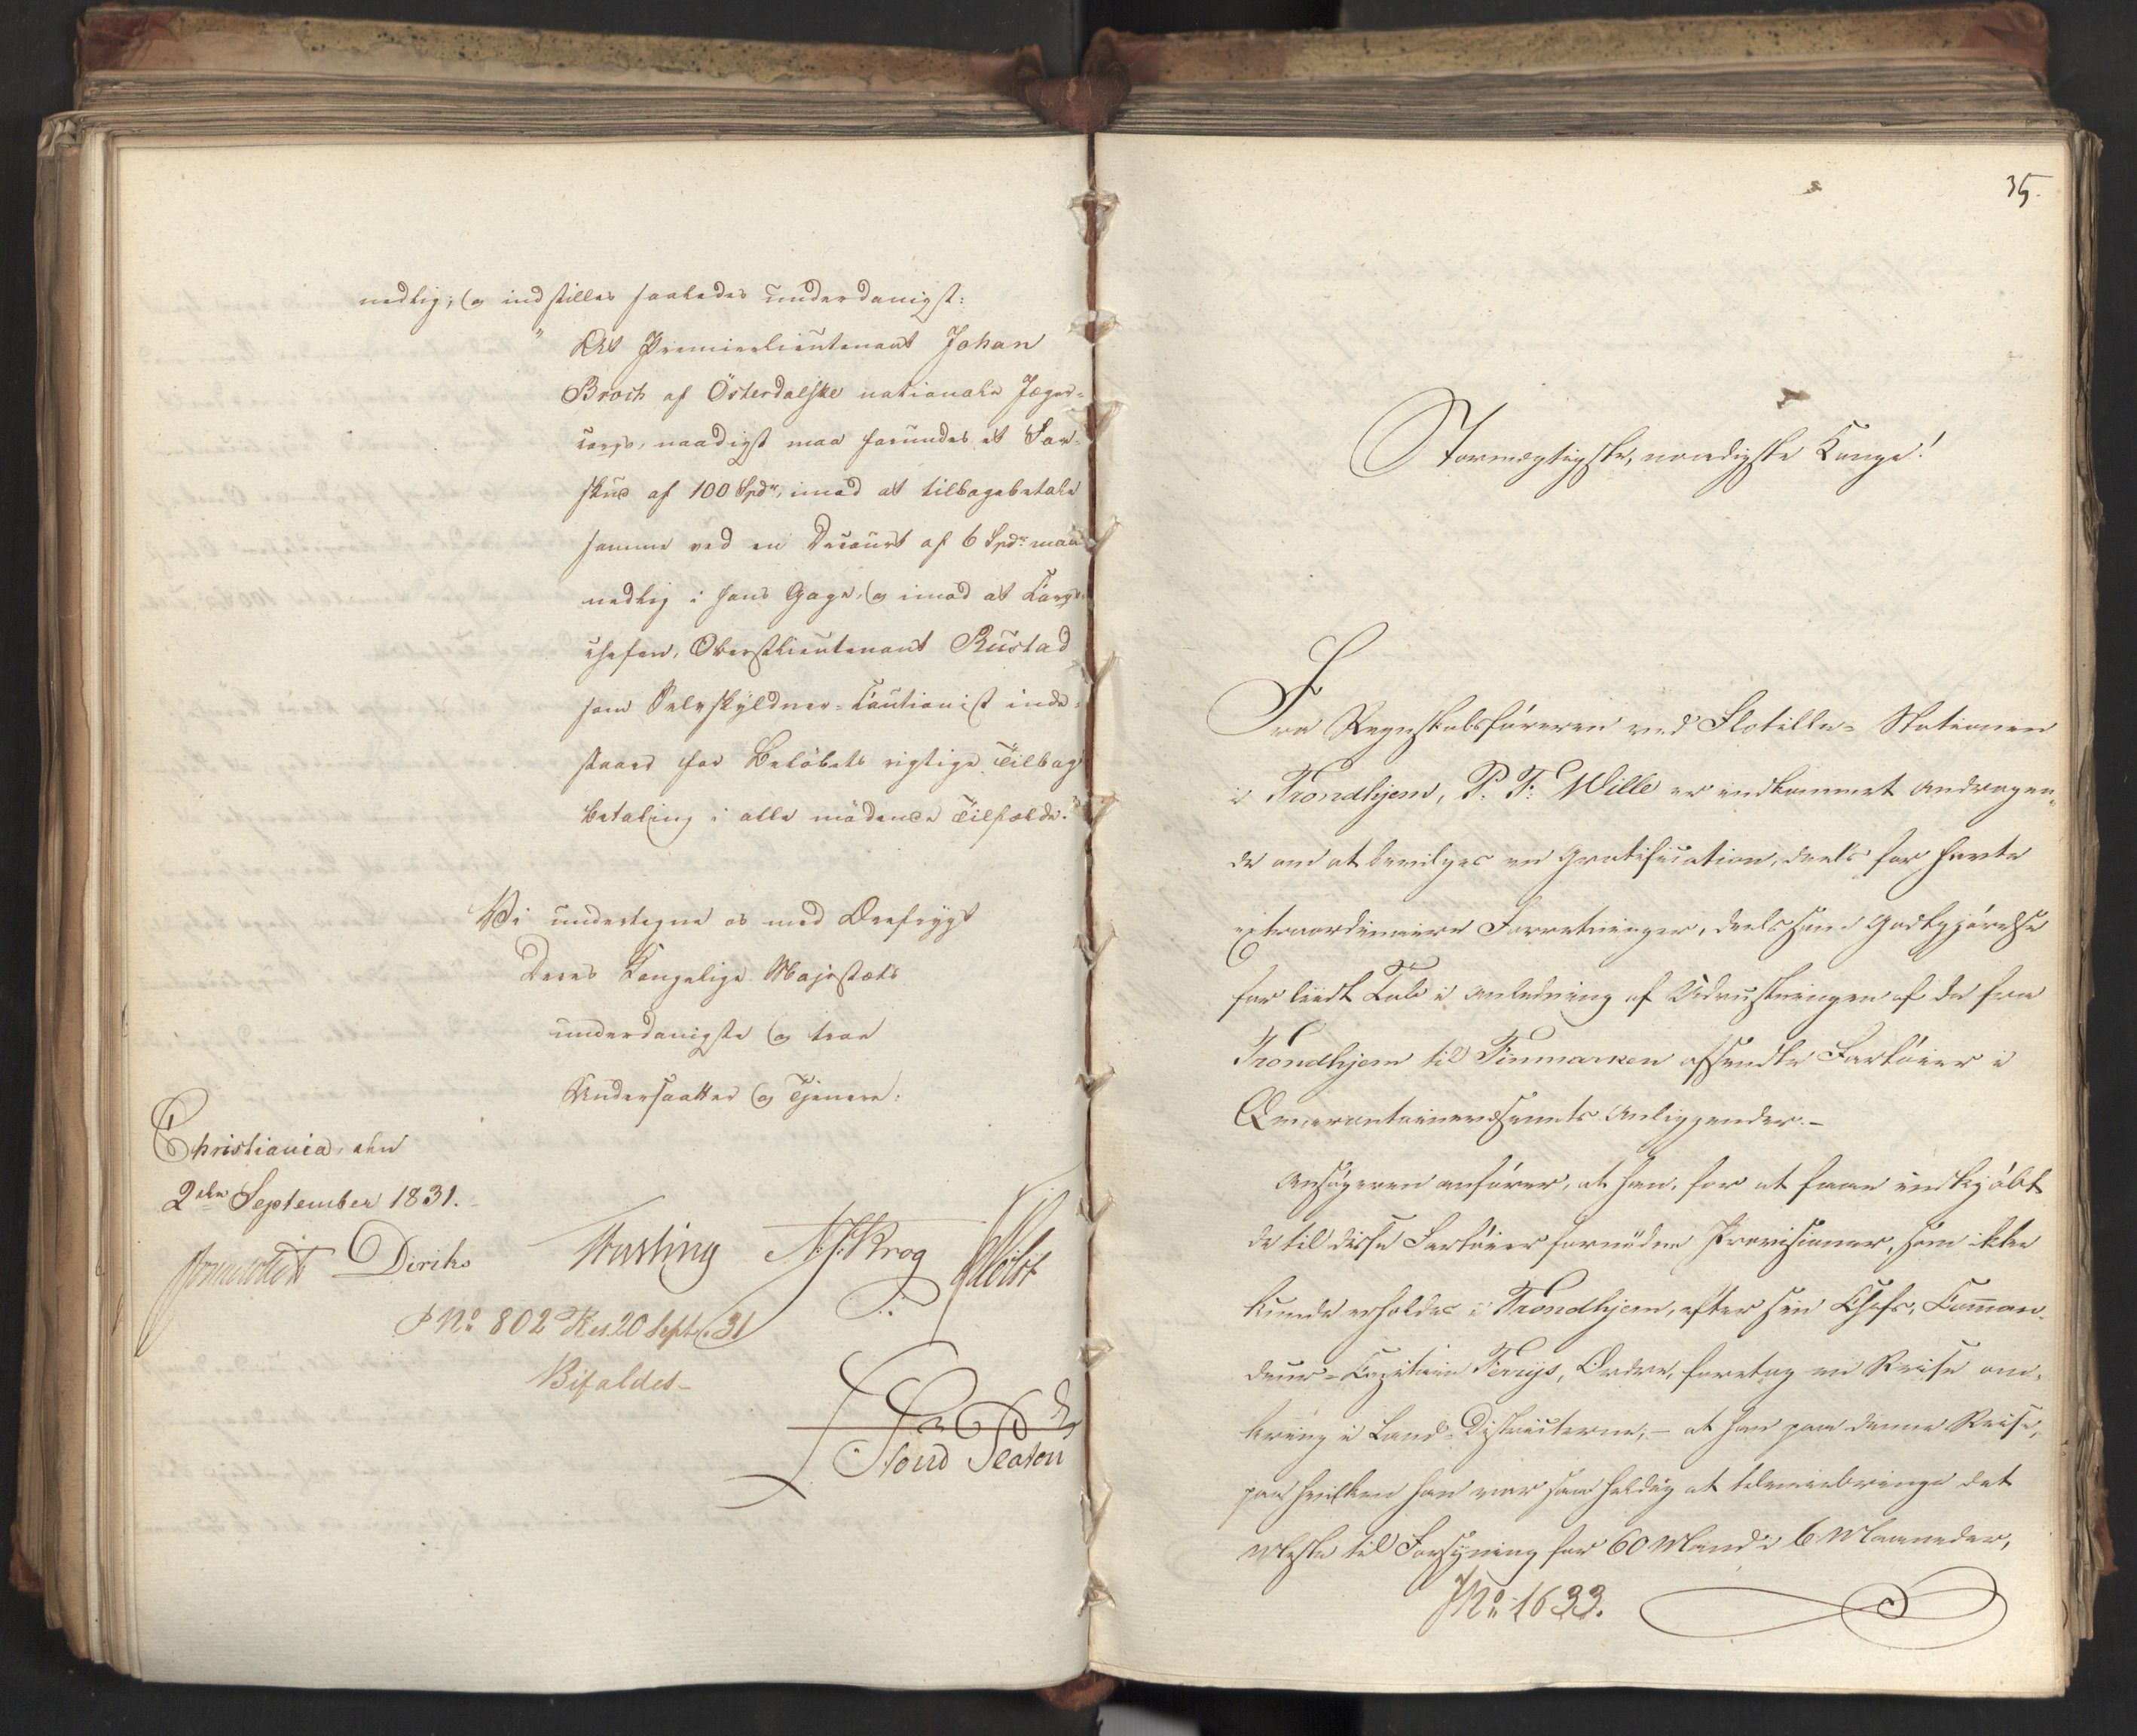 nedlig; og indstilles saaledes underdanigst:
" At Premierlieutenant Johan
Broch af Österdalske nationale Jæger-
corps, naadigst maa forundes et For-
skud af 100 Spdr, imod at tilbagebetale
samme ved en Decourt af 6 Spdr maa
nedlig i hans Gage, og imod at Corps-
chefen, Oberstlieutenant Rustad
som Selvskyldner-Cautionist inde-
staaer for Belöbets rigtige Tilbage
betaling i alle mödende Tilfælde."
Vi undertegne os med Ærefrygt
Deres Kongelige Majestæts
underdanigste og troe
Undersaatter og Tjenere:
Christiania, den
2den September 1831.
Diriks N.J. Krog Holst
P No 802 Res. 20 Septr. 31
Bifaldes-
35.
Stormægtigste, naadigste Konge!
Fra Regnskabsföreren ved Flotille-Stationen
i Trondhjem, P. F: Wille er indkommet Andragen-
de om at bevilges en Gratification, deels for havte
extraordinaire Forretninger, deels som Godtgjörelse
for liidt Tab i Anledning af Udrustningen af de fra
Trondhjem til Finmarken afsendte Fartöier i
Qvarantainevæsenets Anliggender.-
Ansögeren anförer, at han, for at faae indkjöbt
de til disse Fartöier fornödne Provisioner, som ikke
kunde erholdes i Trondhjem, efter sin Chefs, Comman-
deur-Capitain Ordre, foretog en Reise om-
kring i Land-Districterne; - at han paa denne Reise,
paa hvilken han var saa heldig at tilveiebringe det
Meste til Forsyning for 60 Mand i 6 Maaneder,
JNo 1633.